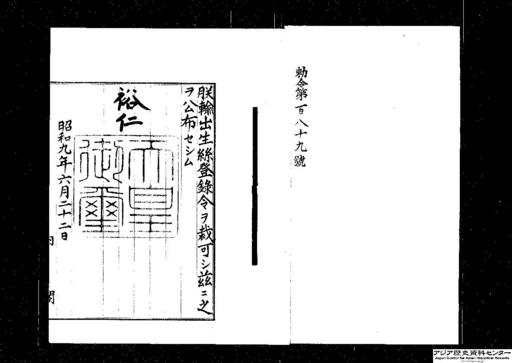 勅令第百八十九號
朕輸出生絲登錄令ヲ裁可シ茲ニ之
ヲ公布セシム
裕仁
天皇
御璽
昭和九年六月二十二日
内閣
アジア歴史資料センター
Japan Center for Asian Historical Records